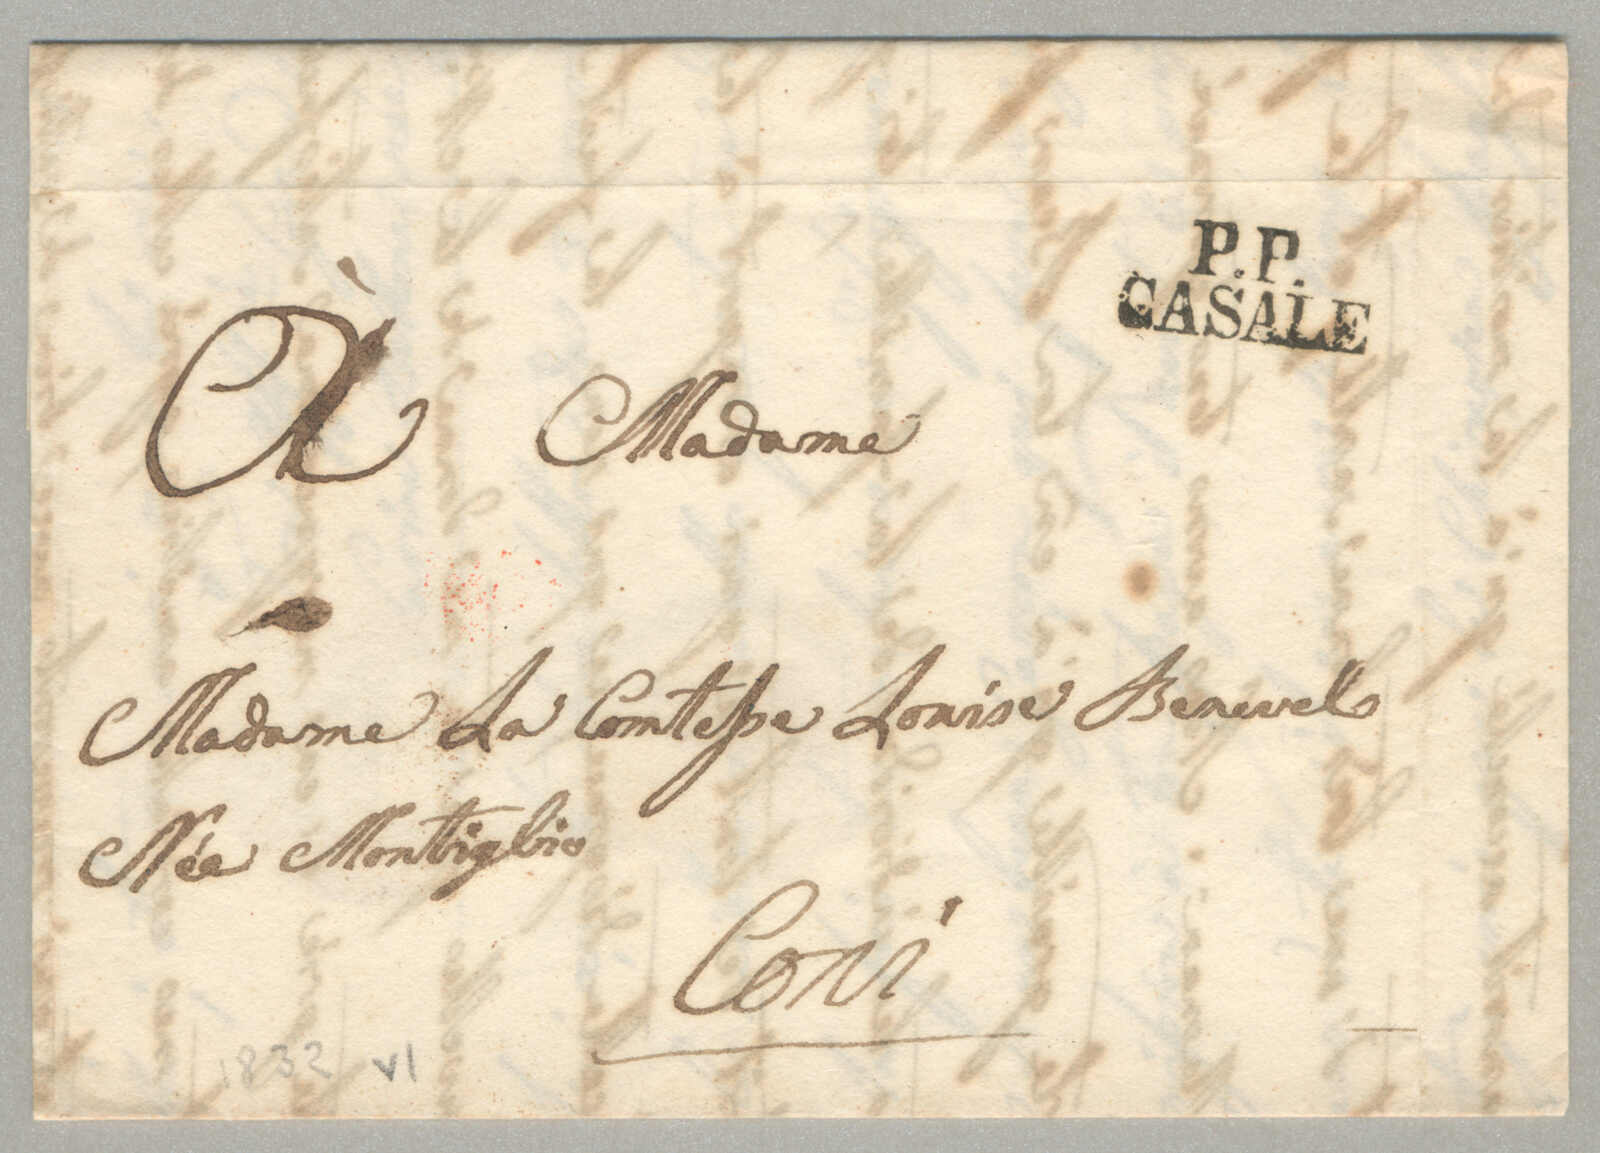 P.P.
CASALE
À Madame
Madame La Comtesse Louise Benevello
Née Montiglio
Coni
1832 VI